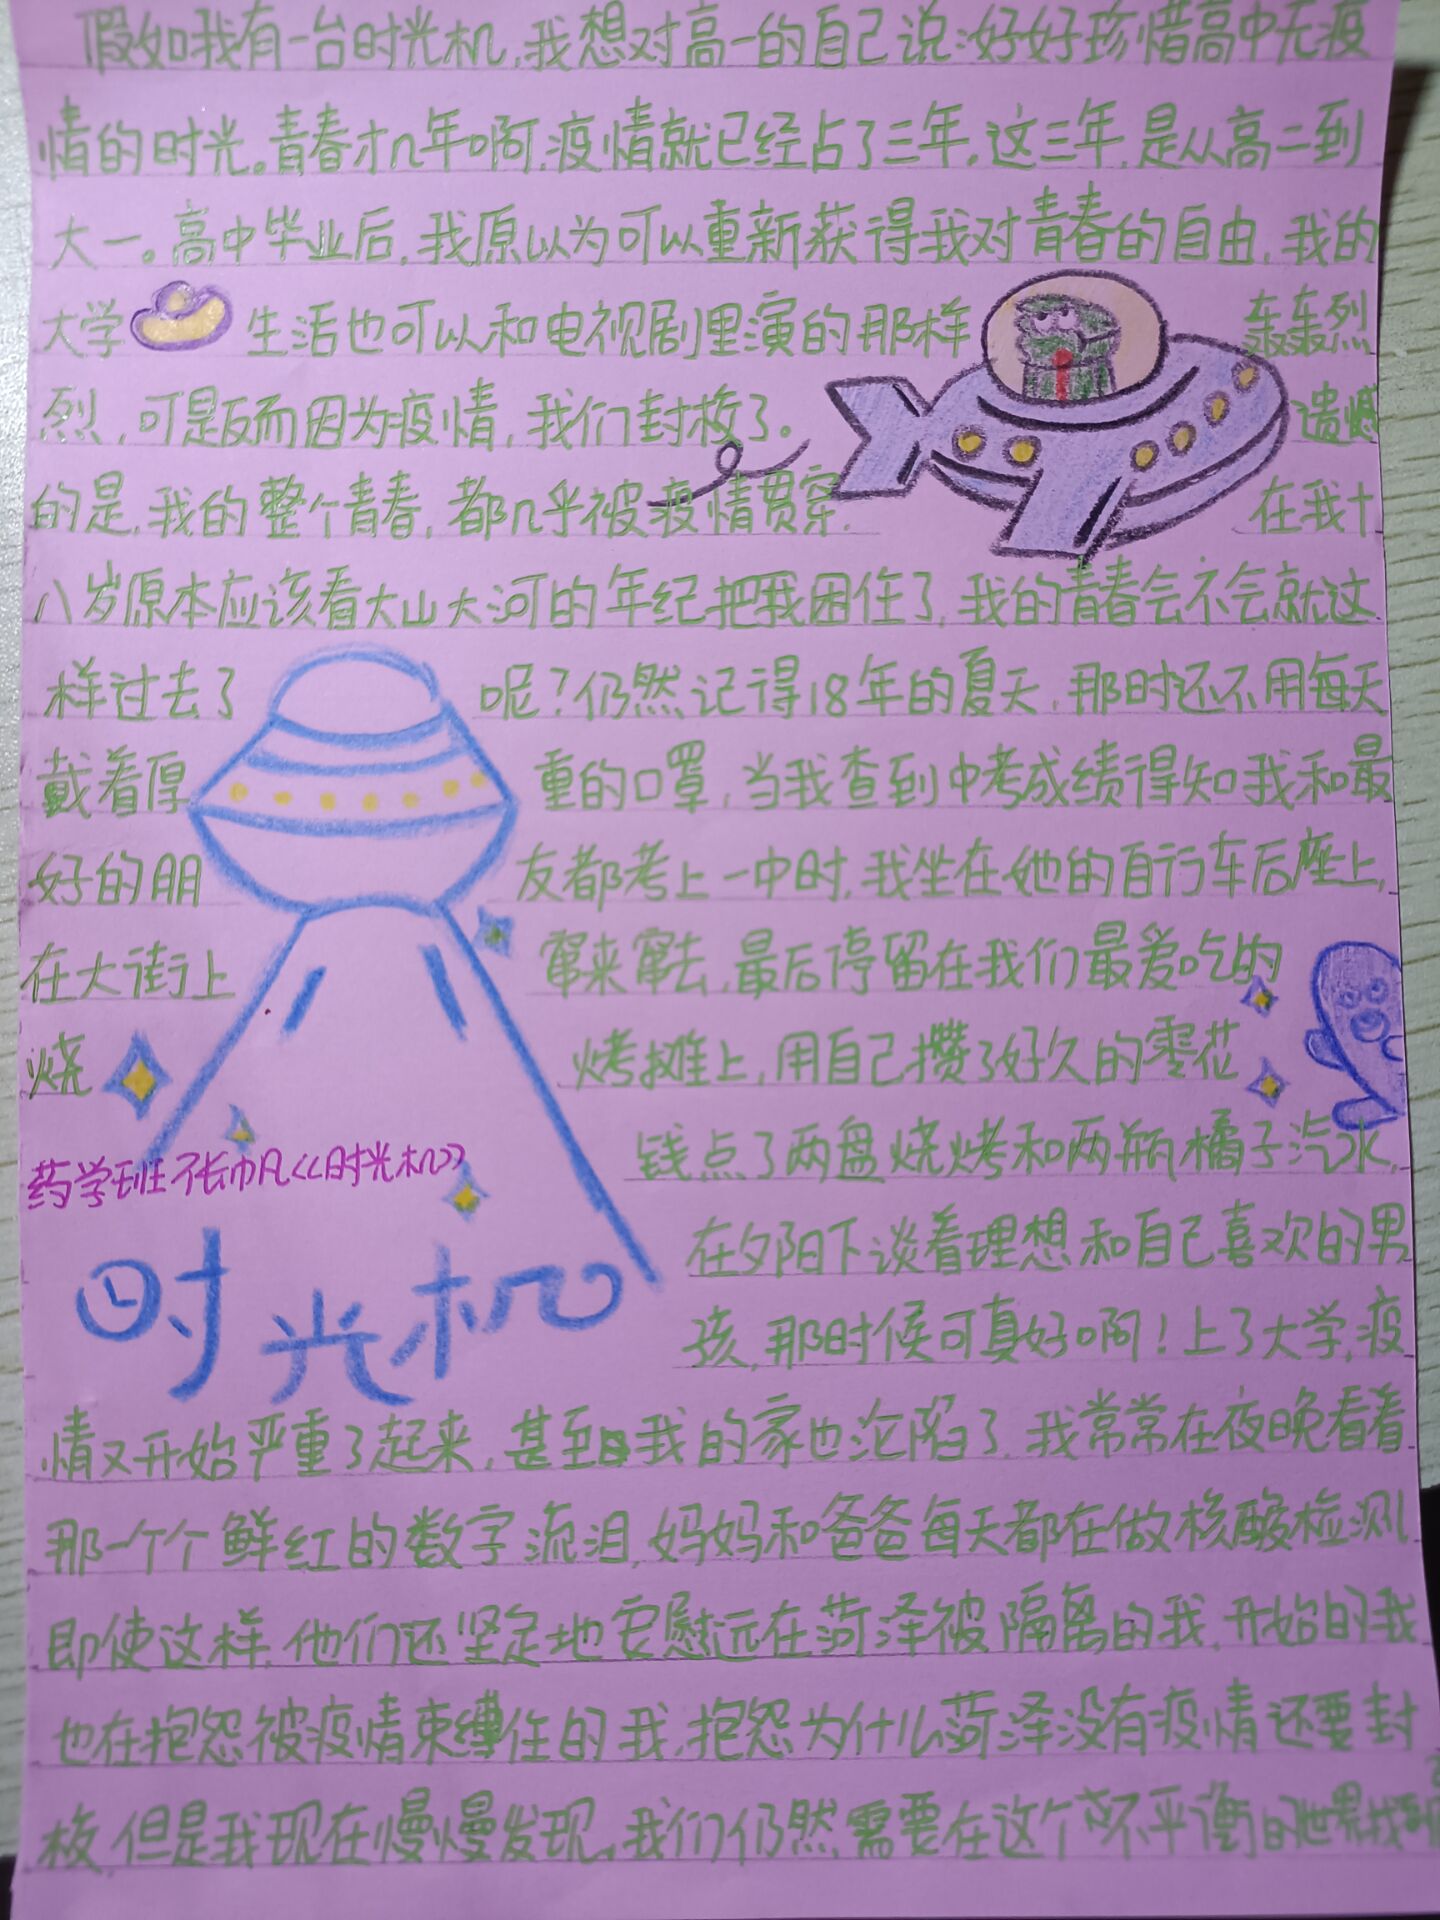 假如我有一台时光机,我想对高一的自己说:好好珍惜高中无疫
情的时光。青春才几年啊,疫情就已经占了三年。这三年,是从高二到
大一。高中毕业后,我原以为可以重新获得我对青春的自由,我的
大学生活也可以和电视剧里演的那样轰轰烈
烈,可是反而因为疫情,我们封校了。遗憾
的是,我的整个青春,都几乎被疫情贯穿,在我十
八岁原本应该看大山大河的年纪把我困住了,我的青春会不会就这
样过去了呢?仍然记得18年的夏天,那时还不用每天
戴着厚重的口罩,当我查到中考成绩得知我和最
好的朋友都考上一中时,我坐在她的自行车后座上,
在大街上窜来窜去,最后停留在我们最爱吃的
烧烤摊上,用自己攒了好久的零花
钱点了两盘烧烤和两瓶橘子汽水,
药学班 张巾凡《时光机》
在夕阳下谈着理想和自己喜欢的男
时光机
孩,那时候可真好啊!上了大学,疫
情又开始严重了起来,甚至我的家也沦陷了,我常常在夜晚看着
那一个个鲜红的数字流泪,妈妈和爸爸每天都在做核酸检测
即使这样,他们还坚定地安慰远在菏泽被隔离的我,开始的我
也在抱怨被疫情束缚住的我,抱怨为什么菏泽没有疫情还要封
校,但是我现在慢慢发现,我们仍然需要在这个不平衡的世界找到